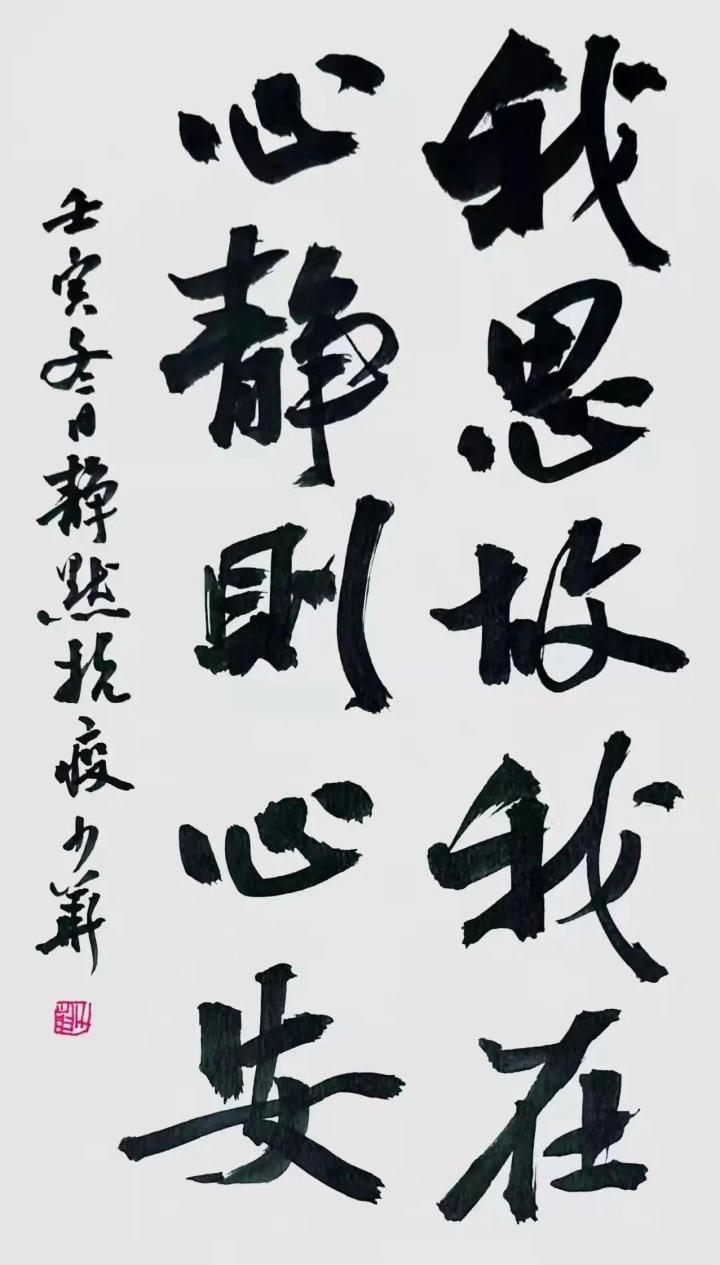 我思故我在
心静則心安
壬寅冬日静默抗疫少華